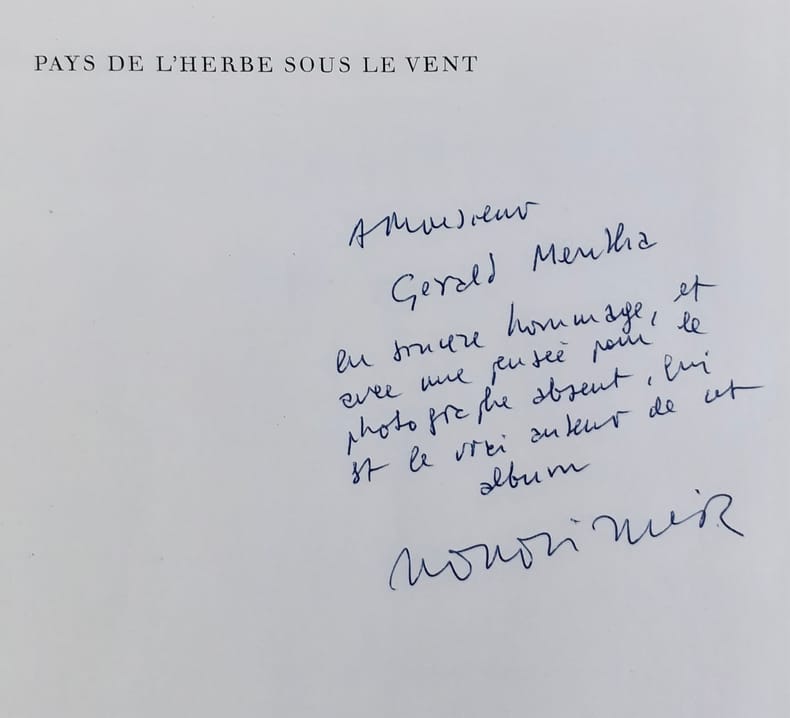 PAYS DE L'HERBE SOUS LE VENT
A Monsieur
Gerald Mentha
en sincère hommage, et
avec une pensée pour le
photographe absent, qui
est le vrai auteur de cet
album